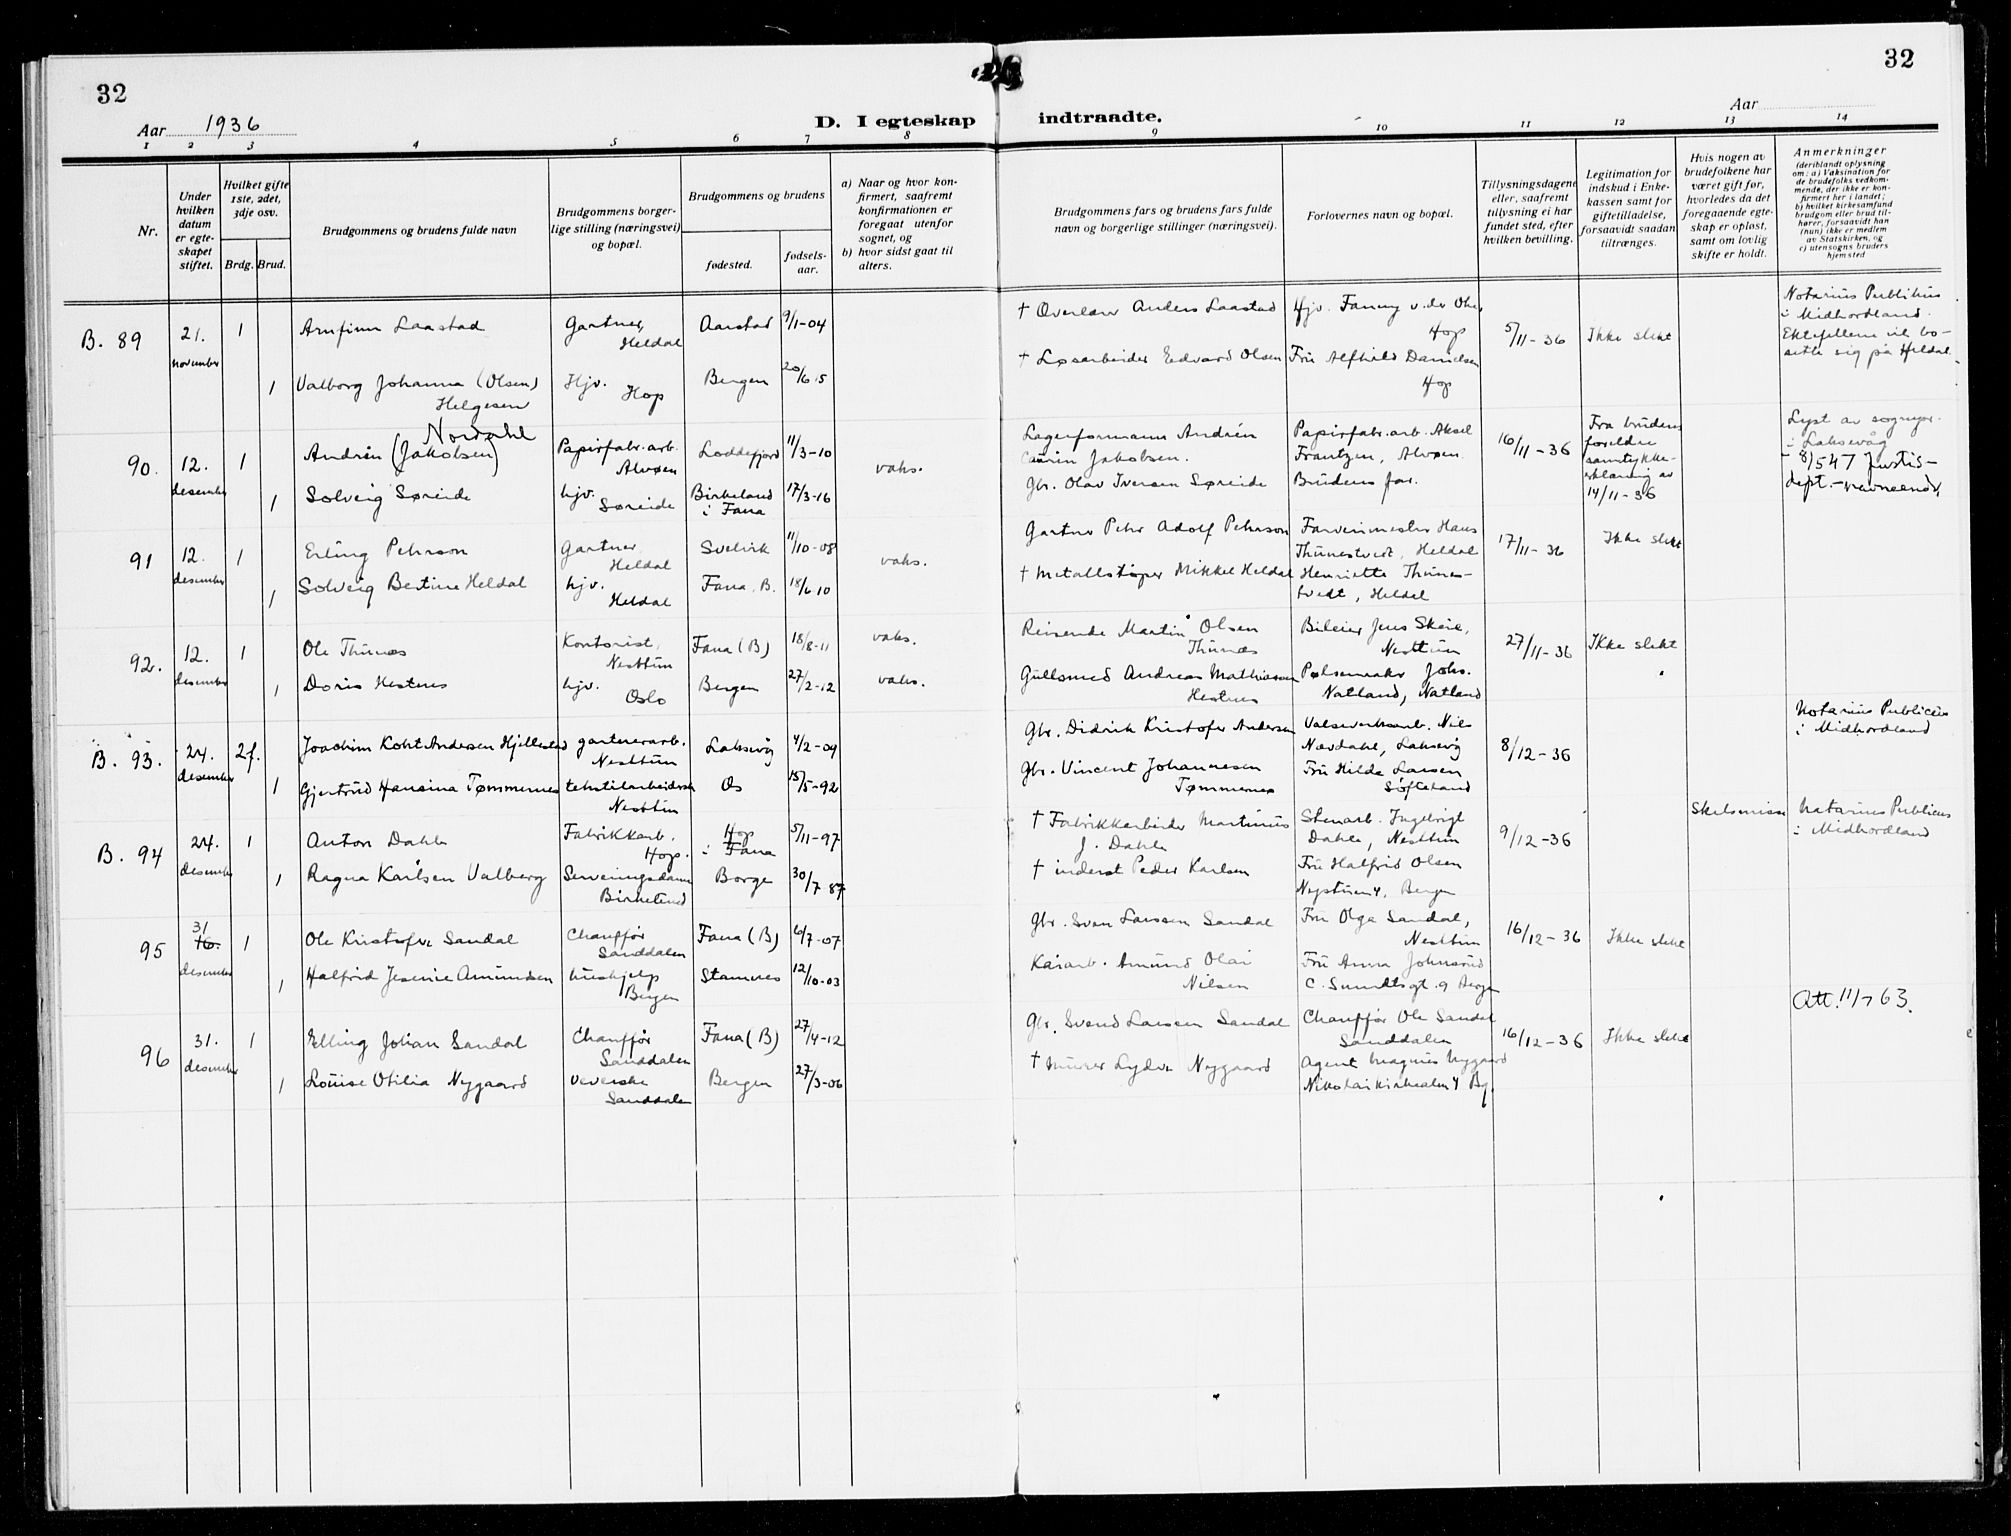 32
32
Aar 1936
D. I egteskap indtraadte.
Aar
1 2 3 4 5 6 7 8 9 10 11 12 13 14
Nr.
Under hvilken datum er egteskapet stiftet.
Hvilket gifte 1ste, 2det, 3dje osv.
Brdg. Brud.
Brudgommens og brudens fulde navn
Brudgommens borgerlige stilling (næringsvei) og bopæl.
Brudgommens og brudens
fødested.
fødselsaar.
a) Naar og hvor konfirmert, saafremt konfirmationen er foregaat utenfor sognet, og
b) hvor sidst gaat til alters.
Brudgommens fars og brudens fars fulde navn og borgerlige stillinger (næringsvei).
Forlovernes navn og bopæl.
Tillysningsdagene eller, saafremt tillysning ei har fundet sted, efter hvilken bevilling.
Legitimation for indskud i Enkekassen samt for giftetilladelse, forsaavidt saadan tiltrænges.
Hvis nogen av brudefolkene har været gift før, hvorledes da det foregaaende egteskap er opløst, samt om lovlig skifte er holdt.
Anmerkninger (deriblandt oplysning om: a) Vaksination for de brudefolks vedkommende, der ikke er konfirmert her i landet; b) hvilket kirkesamfund brudgom eller brud tilhører, forsaavidt han (hun) ikke er medlem av Statskirken, og c) utensogns bruders hjemsted
B. 89 21. november 1 Arnfinn Laastad Gartner, Heldal Aarstad 9/1-04 † Overlærer Anders Laastad Hjv. Fanny v. der Ohe, Hop 5/11-36 Ikke slekt Notarius Publikus i Midhordland. Ektefellene vil bosette sig på Heldal.
1 Valborg Johanna (Olsen) Helgesen Hjv. Hop Bergen 20/6 15 † Løsarbeider Edvard Olsen Fru Alfhild Danielsen Hop
90. 12. desember 1 Andrén (Jakobsen) Nordahl Papirfabr.arb. Alvøen Loddefjord 11/3-10 vaks. Lagerformann Andrén Jakobsen. Papirfabr.arb. Aksel Frantzen, Alvøen 16/11-36 Fra brudens foreldre samtykkeerklæring av 14/11-36 Lyst av sognepr. i Laksevåg
8/547 Justisdept.-
1 Solveig Søreide hjv. Søreide Birkeland i Fana 17/3-16 Gbr. Olav Iversen Søreide Brudens far.
91 12. desember 1 Erling Pehrson Gartner Heldal Svelvik 11/10-08 vaks. Gartner Pehr Adolf Pehrson Farverimester Hans Thunestvedt, Heldal 17/11-36 Ikke slekt
1 Solveig Bertine Heldal hjv. Heldal Fana. B. 18/6 10 † Metallstøper Mikkel Heldal Henriette Thunestvedt, Heldal
92. 12. desember 1 Ole Thunæs Kontorist, Nesttun Fana (B) 18/8-11 vaks. Reisende Martin Olsen Thunæs Bileier Jens Skeie, Nesttun 27/11-36 Ikke slekt
1 Doris Hestnes hjv. Oslo Bergen 27/2-12 vaks. Gullsmed Andreas Mathiassen Hestnes Pølsemaker Johs. Natland, Natland
B. 93. 24. desember 2f. Joachim Koht Andersen Hjellestad gartnerarb. Nesttun Laksevåg 4/2-04 Gbr. Didrik Kristofer Andersen Valseverksarb. Nils Nævdahl, Laksevåg 8/12-36 Notarius Publicus i Midhordland
1 Gjertrud Hansina Tømmernes tekstilarbeiderske Nesttun Os 15/5-92 Gbr. Vincent Johannesen Tømmernes Fru Hilda Larsen Søfteland
B. 94 24. desember 1 Anton Dahle Fabrikkarb. Hop. Hop i Fana 5/11-97 † Fabrikkarbeider Martinus J. Dahle Stenarb. Ingebrigt Dahle, Nesttun 9/12-36 Skilsmisse Notarius Publicus i Midhordland
1 Ragna Karlsen Valberg Serveringsdame Birkelund Borge 30/7 87 † inderst Peder Karlsen Fru Halfrid Olsen Nystuen 4, Bergen
95 31 16. desember 1 Ole Kristofer Sandal Chauffør Sanddalen Fana (B) 6/7-07 Gbr. Sven Larsen Sandal Fru Olga Sandal, Nesttun 16/12-36 Ikke slekt
1 Halfrid Jesenie Amundsen hushjelp Bergen Stamnes 12/10-03 Kaiarb. Amund Olai Nilsen Fru Anna Johnsrud C. Sundtsgt. 9 Bergen
Att. 11/7 63.
96 31. desember 1 Elling Johan Sandal Chauffør Sanddalen Fana (B) 27/4-12 Gbr. Svend Larsen Sandal Chauffør Ole Sandal Sanddalen 16/12-36 Ikke slekt
1 Louise Otilia Nygaard Veverske Sanddalen Bergen 27/3-06 † Murer Lyder Nygaard Agent Magnus Nygaard Nikolaikirkealm 4 Bg.